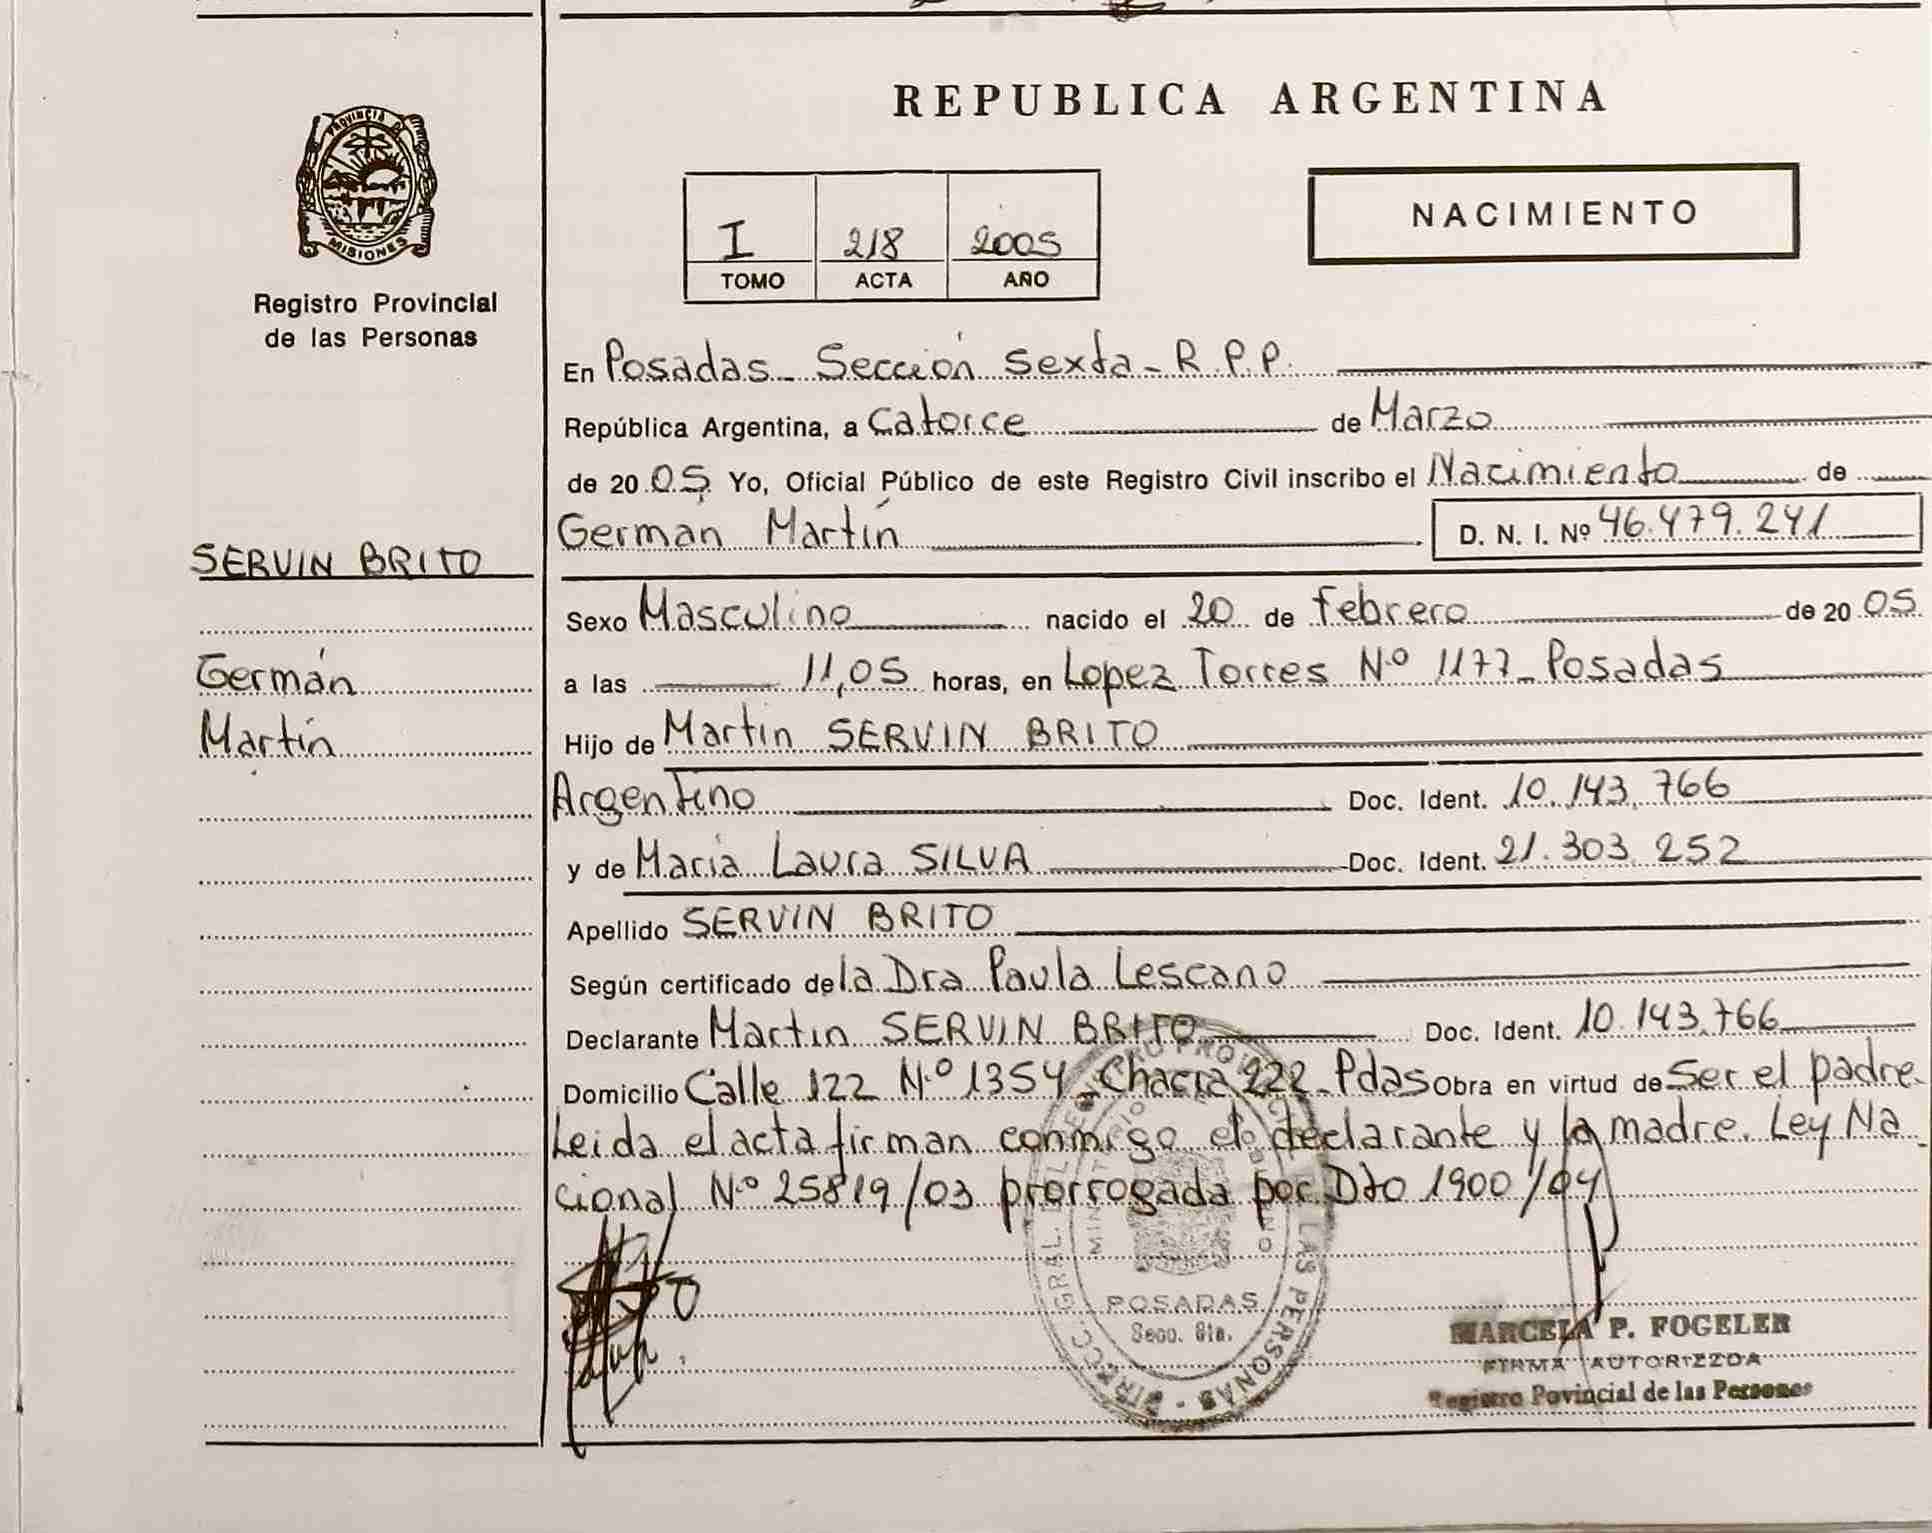 REPUBLICA ARGENTINA
PROVINCIA D
MISIONES
Registro Provincial
de las Personas
I 218 2005
TOMO ACTA AÑO
NACIMIENTO
En Posadas - Sección Sexta - R.P.P.
República Argentina, a Catorce de Marzo
de 2005 Yo, Oficial Público de este Registro Civil inscribo el Nacimiento de
Germán Martín D. N. I. Nº 46.479.241
SERVIN BRITO
Germán
Martín
Sexo Masculino nacido el 20 de Febrero de 2005
a las 11,05 horas, en Lopez Torres Nº 1177 - Posadas
Hijo de Martin SERVIN BRITO
Argentino Doc. Ident. 10.143.766
y de María Laura SILVA Doc. Ident. 21.303.252
Apellido SERVIN BRITO
Según certificado de la Dra Paula Lescano
Declarante Martin SERVIN BRITO Doc. Ident. 10.143.766
Domicilio Calle 122 Nº 1354 Chacra 222 - Pdas Obra en virtud de Ser el padre.
Leida el acta firman conmigo el declarante y la madre. Ley Na
cional Nº 25819/03 prorrogada por Dto 1900/04
DIRECC. GRAL. DEL REGISTRO PROV. LAS PERSONAS
POSADAS
Secc. 6ta.
MARCELA P. FOGELER
FIRMA AUTORIZZDA
Registro Povincial de las Personas